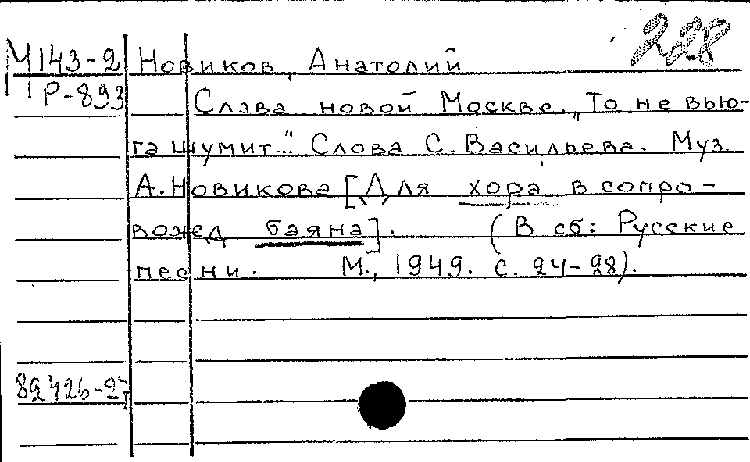 228
М143-2 Новиков, Анатолий
Р-893 Слава новой Москве. „То не вью-
га шумит..." Слова С. Васильева. Муз.
А. Новикова [Для хора в сопро-
вожд баяна]. (В сб: Русские
песни. М., 1949. С. 24-28).